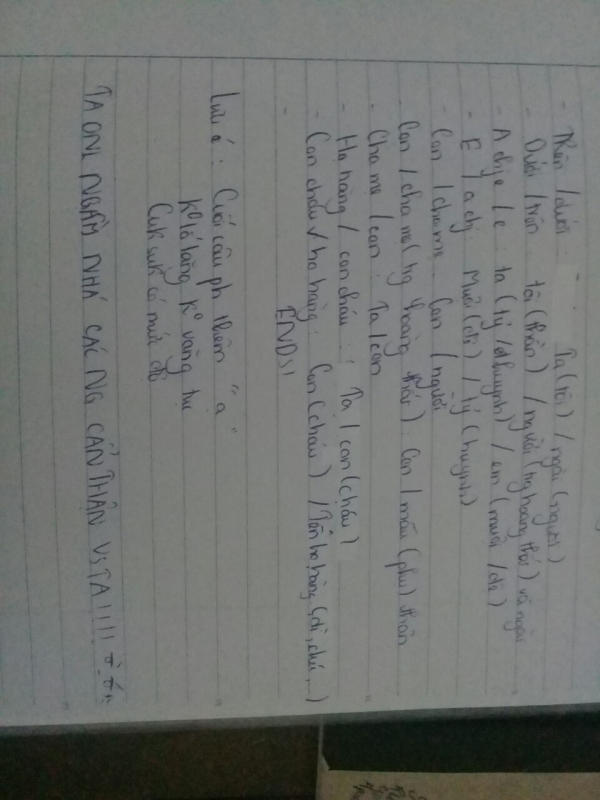 - Trên / dưới : Ta (tôi) / ngài (ngươi)
- Dưới / trên : tôi (thần) / người (ng hoàng thất) và ngài
- A chị e / e : ta (tỷ / đ huynh) / em (muội / đệ)
- E / a chị : Muội (đệ) / tỷ (huynh)
- Con / cha mẹ : Con / người
Con / cha mẹ (ng hoàng thất) : Con / mẫu (phụ) thân
- Cha mẹ / con : Ta / con
- Họ hàng / con cháu : Ta / con (cháu)
- Con cháu / họ hàng : Con (cháu) / Tên họ hàng (dì, chú, ...)
END!!
Lưu ý : Cuối câu ph thêm "ạ"
K° lố lăng k° văng tục
Cuk suk có mức độ
TA ONL NGẦM NHÁ CÁC NG CẨN THẬN VS TA !!!!